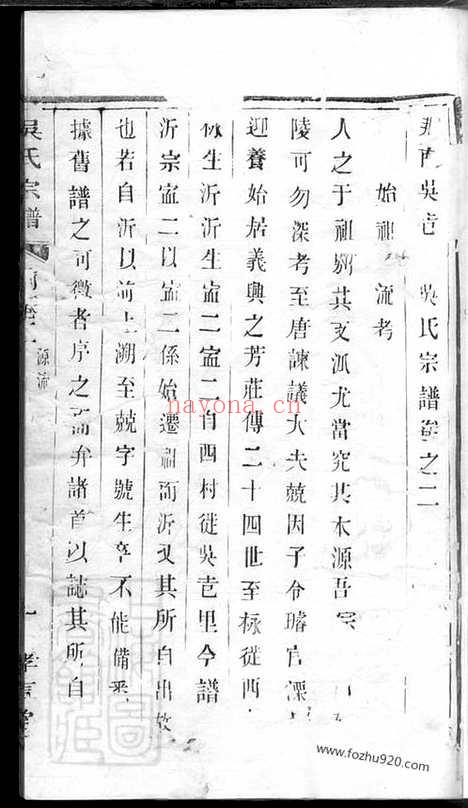 吳芭 吳氏宗譜卷之二
始祖 流考
人之于祖例其支派尤當究其本源吾宗
陵可勿深考至唐諫議大夫兢因子令璿官溧
迎養始居義興之芳莊傳二十四世至栐從西
栐生沂沂生寍二寍二自四村徙吳芭里今譜
沂宗寍二以寍二係始遷祖而沂又其所自出故
也若自沂以前上溯至兢字號生卒不能備悉
據舊譜之可徵者序之而弁諸首以誌其所自
吳氏宗譜
源流
一
nayona.cn
www.fozhu920.com